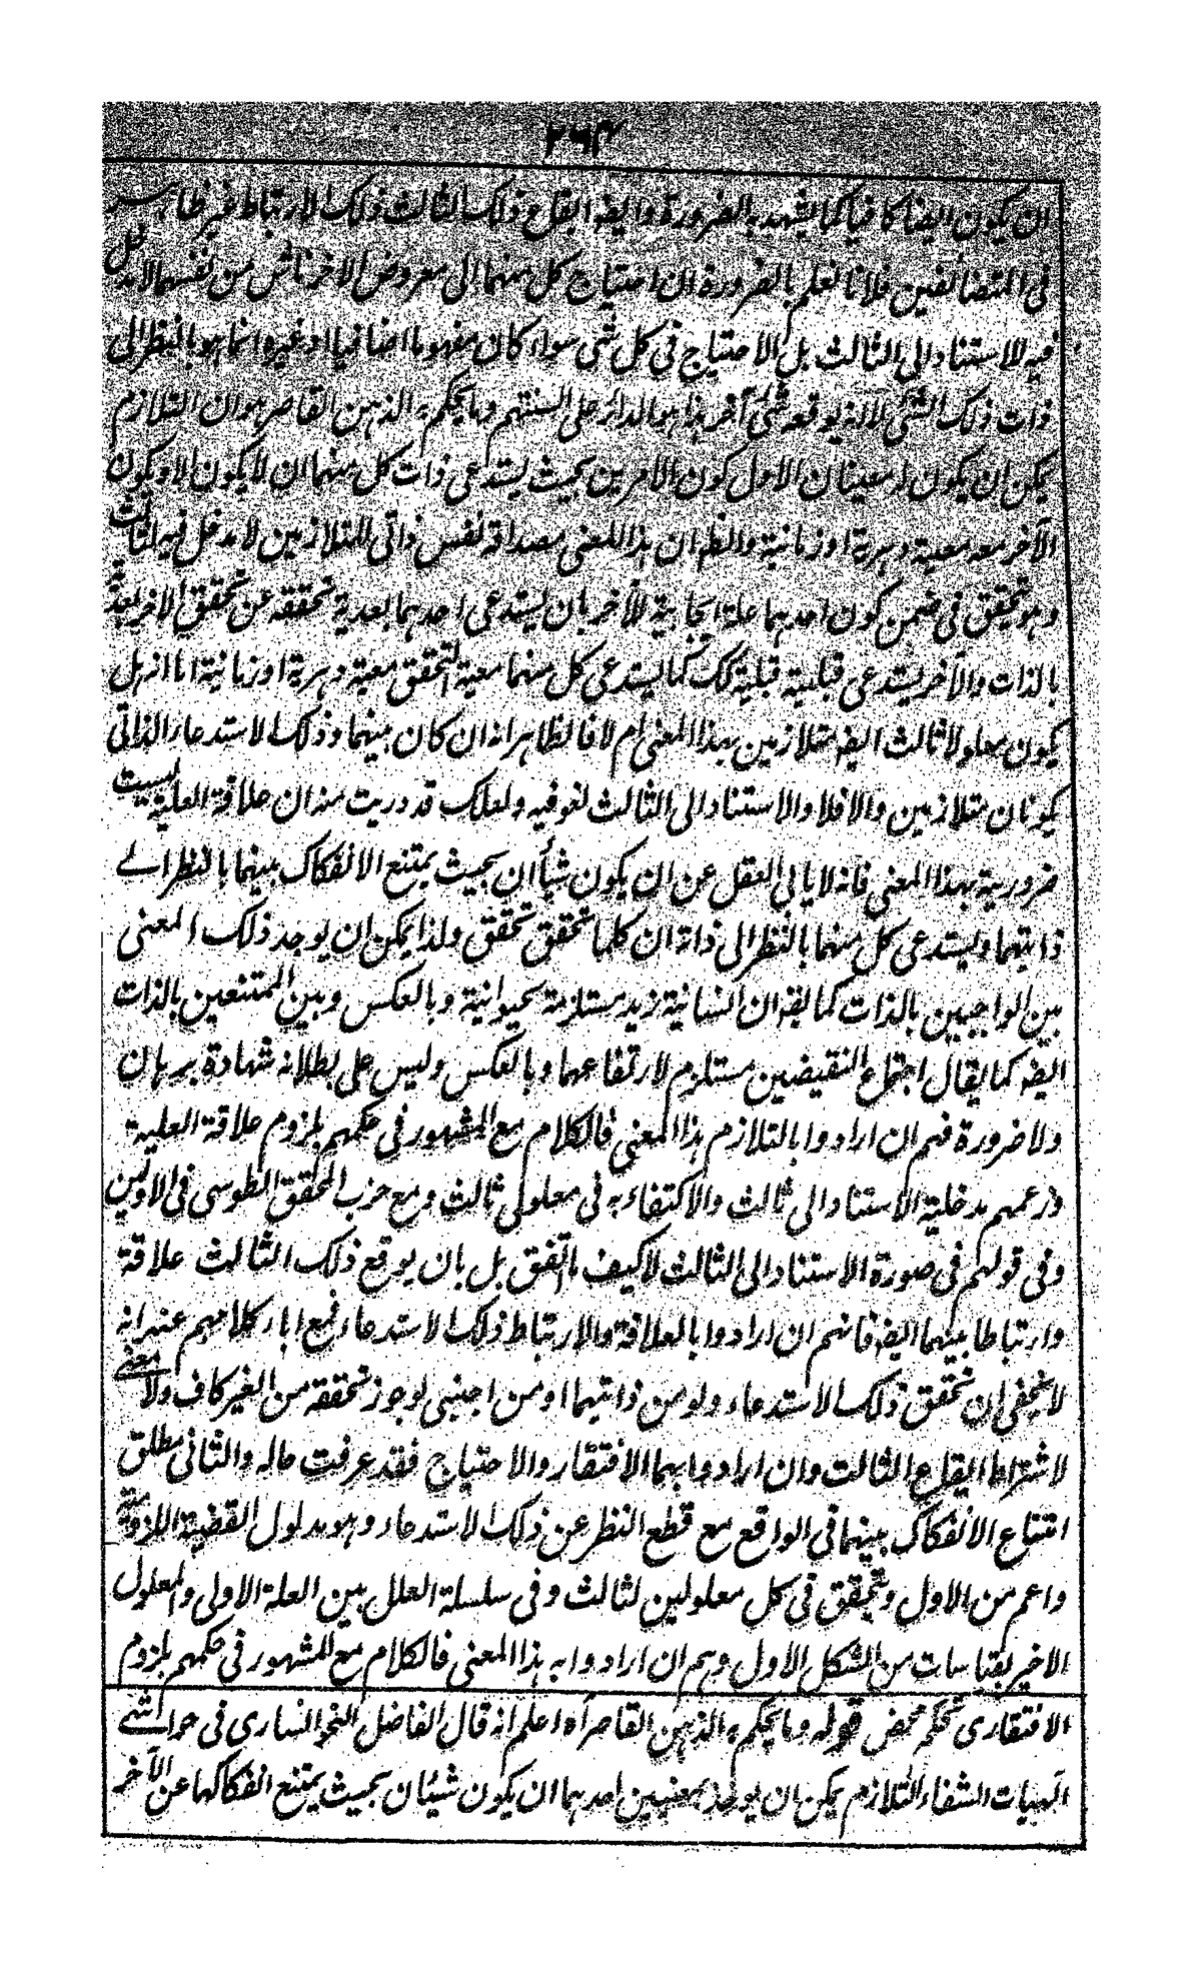 ٢٦٤
ان يكون ايضا كافيا كما يشهد به الضرورة وايضه ايقاع ذلك الثالث ذلك الارتباط غير ظاهر
فى المتضائفين فلانا نعلم بالضرورة ان احتياج كل منهما الى معروض الاخر ناش من نفسهما لا دخل
فيه للاستناد الى الثالث بل الاحتياج فى كل شى سواء كان مفهوما اضافيا او غيره انما هو بالنظر الى
ذات ذلك الشئ لا انه يوقعه شئ آخر هذا هو الدائر على السنتهم وما يحكم به الذهن القاصر هو ان التلازم
يمكن ان يكون له معينان الاول كون الامرين بحيث يستدعى ذات كل منهما ان لا يكون الا ويكون
الآخر معه معية دهرية او زمانية والظ ان هذا المعنى مصداقه نفس ذاتى المتلازمين لا مدخل فيه لثالث
وهو يتحقق فى ضمن كون احدهما علة ايجابية للآخر بان يستدعى احدهما بعدية تحققه عن تحقق الاخر بعدية
بالذات والآخر يستدعى قبلية قبلية كك كما يستدعى كل منهما معية التحقق معية دهرية او زمانية اما انه هل
يكون معلولا ثالث ايضه متلازمين بهذا المعنى ام لا فالظاهر انه ان كان بينهما وذلك الاستدعاء الذاتى
يكونان متلازمين والا فلا والاستناد الى الثالث لغو فيه ولعلك قد دريت منه ان علاقة العلية ليست
ضرورية بهذا المعنى فانه لا يابى العقل عن ان يكون شيأ ان بحيث يمتنع الانفكاك بينهما بالنظر الے
ذاتيهما ويستدعى كل منهما بالنظر الى ذاته ان كلما تحقق تحقق ولذا يمكن ان يوجد ذلك المعنى
بين الواجبين بالذات كما يقه ان انسانية زيد مستلزمة بحيوانية وبالعكس وبين الممتنعين بالذات
ايضه كما يقال اجتماع النقيضين مستلزم لارتفاعهما وبالعكس وليس على بطلانه شهادة برهان
ولا ضرورة فهم ان ارادوا بالتلازم هذا المعنى فالكلام مع المشهور فى حكمهم بلزوم علاقة العلية
وزعمهم مدخلية الاستناد الى ثالث والاكتفاء به فى معلولى ثالث ومع حزب المحقق الطوسى فى الاولين
وفى قولهم فى صورة الاستناد الى الثالث لا كيف ما اتفق بل بان يوقع ذلك الثالث علاقة
وارتباطا بينهما ايضه فانهم ان ارادوا بالعلاقة والارتباط ذلك الاستدعاء فمع اباء كلامهم عنه انه
لا يخفى ان تحقق ذلك الاستدعاء ولو من ذاتيهما او من اجنبى لو جوز تحققه من الغير كاف ولا معنى
لاشتراط ايقاع الثالث وان ارادوا بهما الافتقار والاحتياج فقد عرفت حاله والثانى مطلق
امتناع الانفكاك بينهما فى الواقع مع قطع النظر عن ذلك الاستدعاء وهو مدلول القضية اللزومية
واعم من الاول ويتحقق فى كل معلولين لثالث وفى سلسلة العلل بين العلة الاولى والمعلول
الاخير بقياسات من الشكل الاول وهم ان ارادوا به هذا المعنى فالكلام مع المشهور فى حكمهم بلزوم
الافتقارى تحكم محض قوله وما يحكم به الذهن القاصر آه اعلم انه قال الفاضل الخوانسارى فى حواشے
الهيات الشفاء التلازم يمكن ان يوخذ بمعنيين احدهما ان يكون شيئان بحيث يمتنع انفكاكها عن الآخر